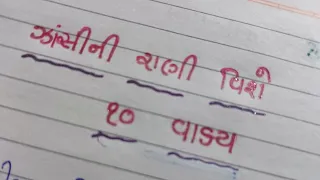 ઝાંસીની રાણી વિશે
૧૦ વાક્ય